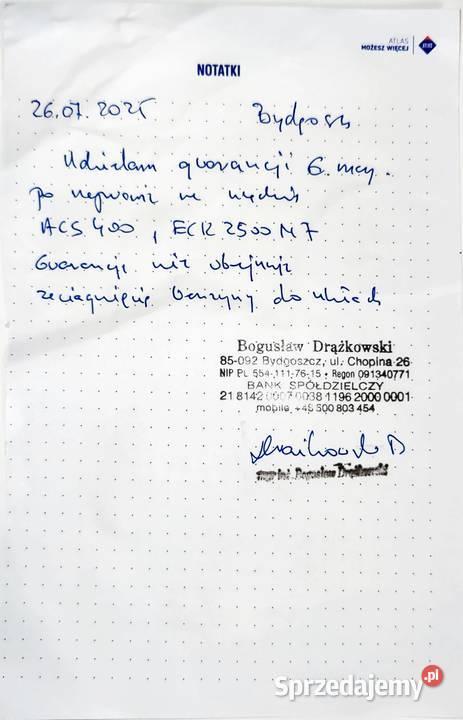 ATLAS
MOŻESZ WIĘCEJ
NOTATKI
26.07.2025 Bydgoszcz
Udzielam gwarancji 6 mcy.
Po naprawie na
ACS 400, ECR 2500 N7
Gwarancja nie obejmuje
zaciągnięcie benzyny do
Bogusław Drążkowski
85-092 Bydgoszcz, ul. Chopina 26
NIP PL 554-111-76-15 • Regon 091340771
BANK SPÓŁDZIELCZY
21 8142 0007 0038 1196 2000 0001
mobile, +48 500 803 454
mgr inż. Bogusław Drążkowski
Sprzedajemy.pl